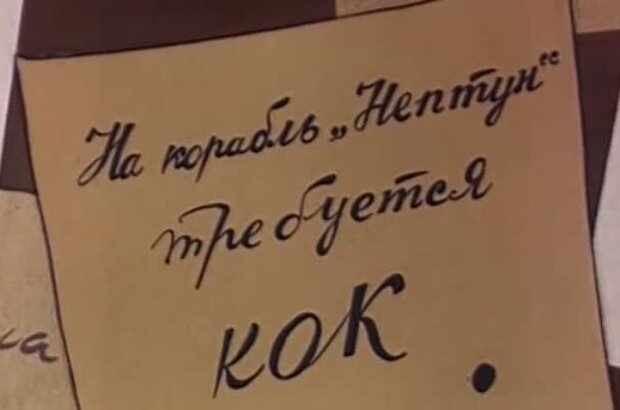 На корабль „Нептун“
требуется
КОК.